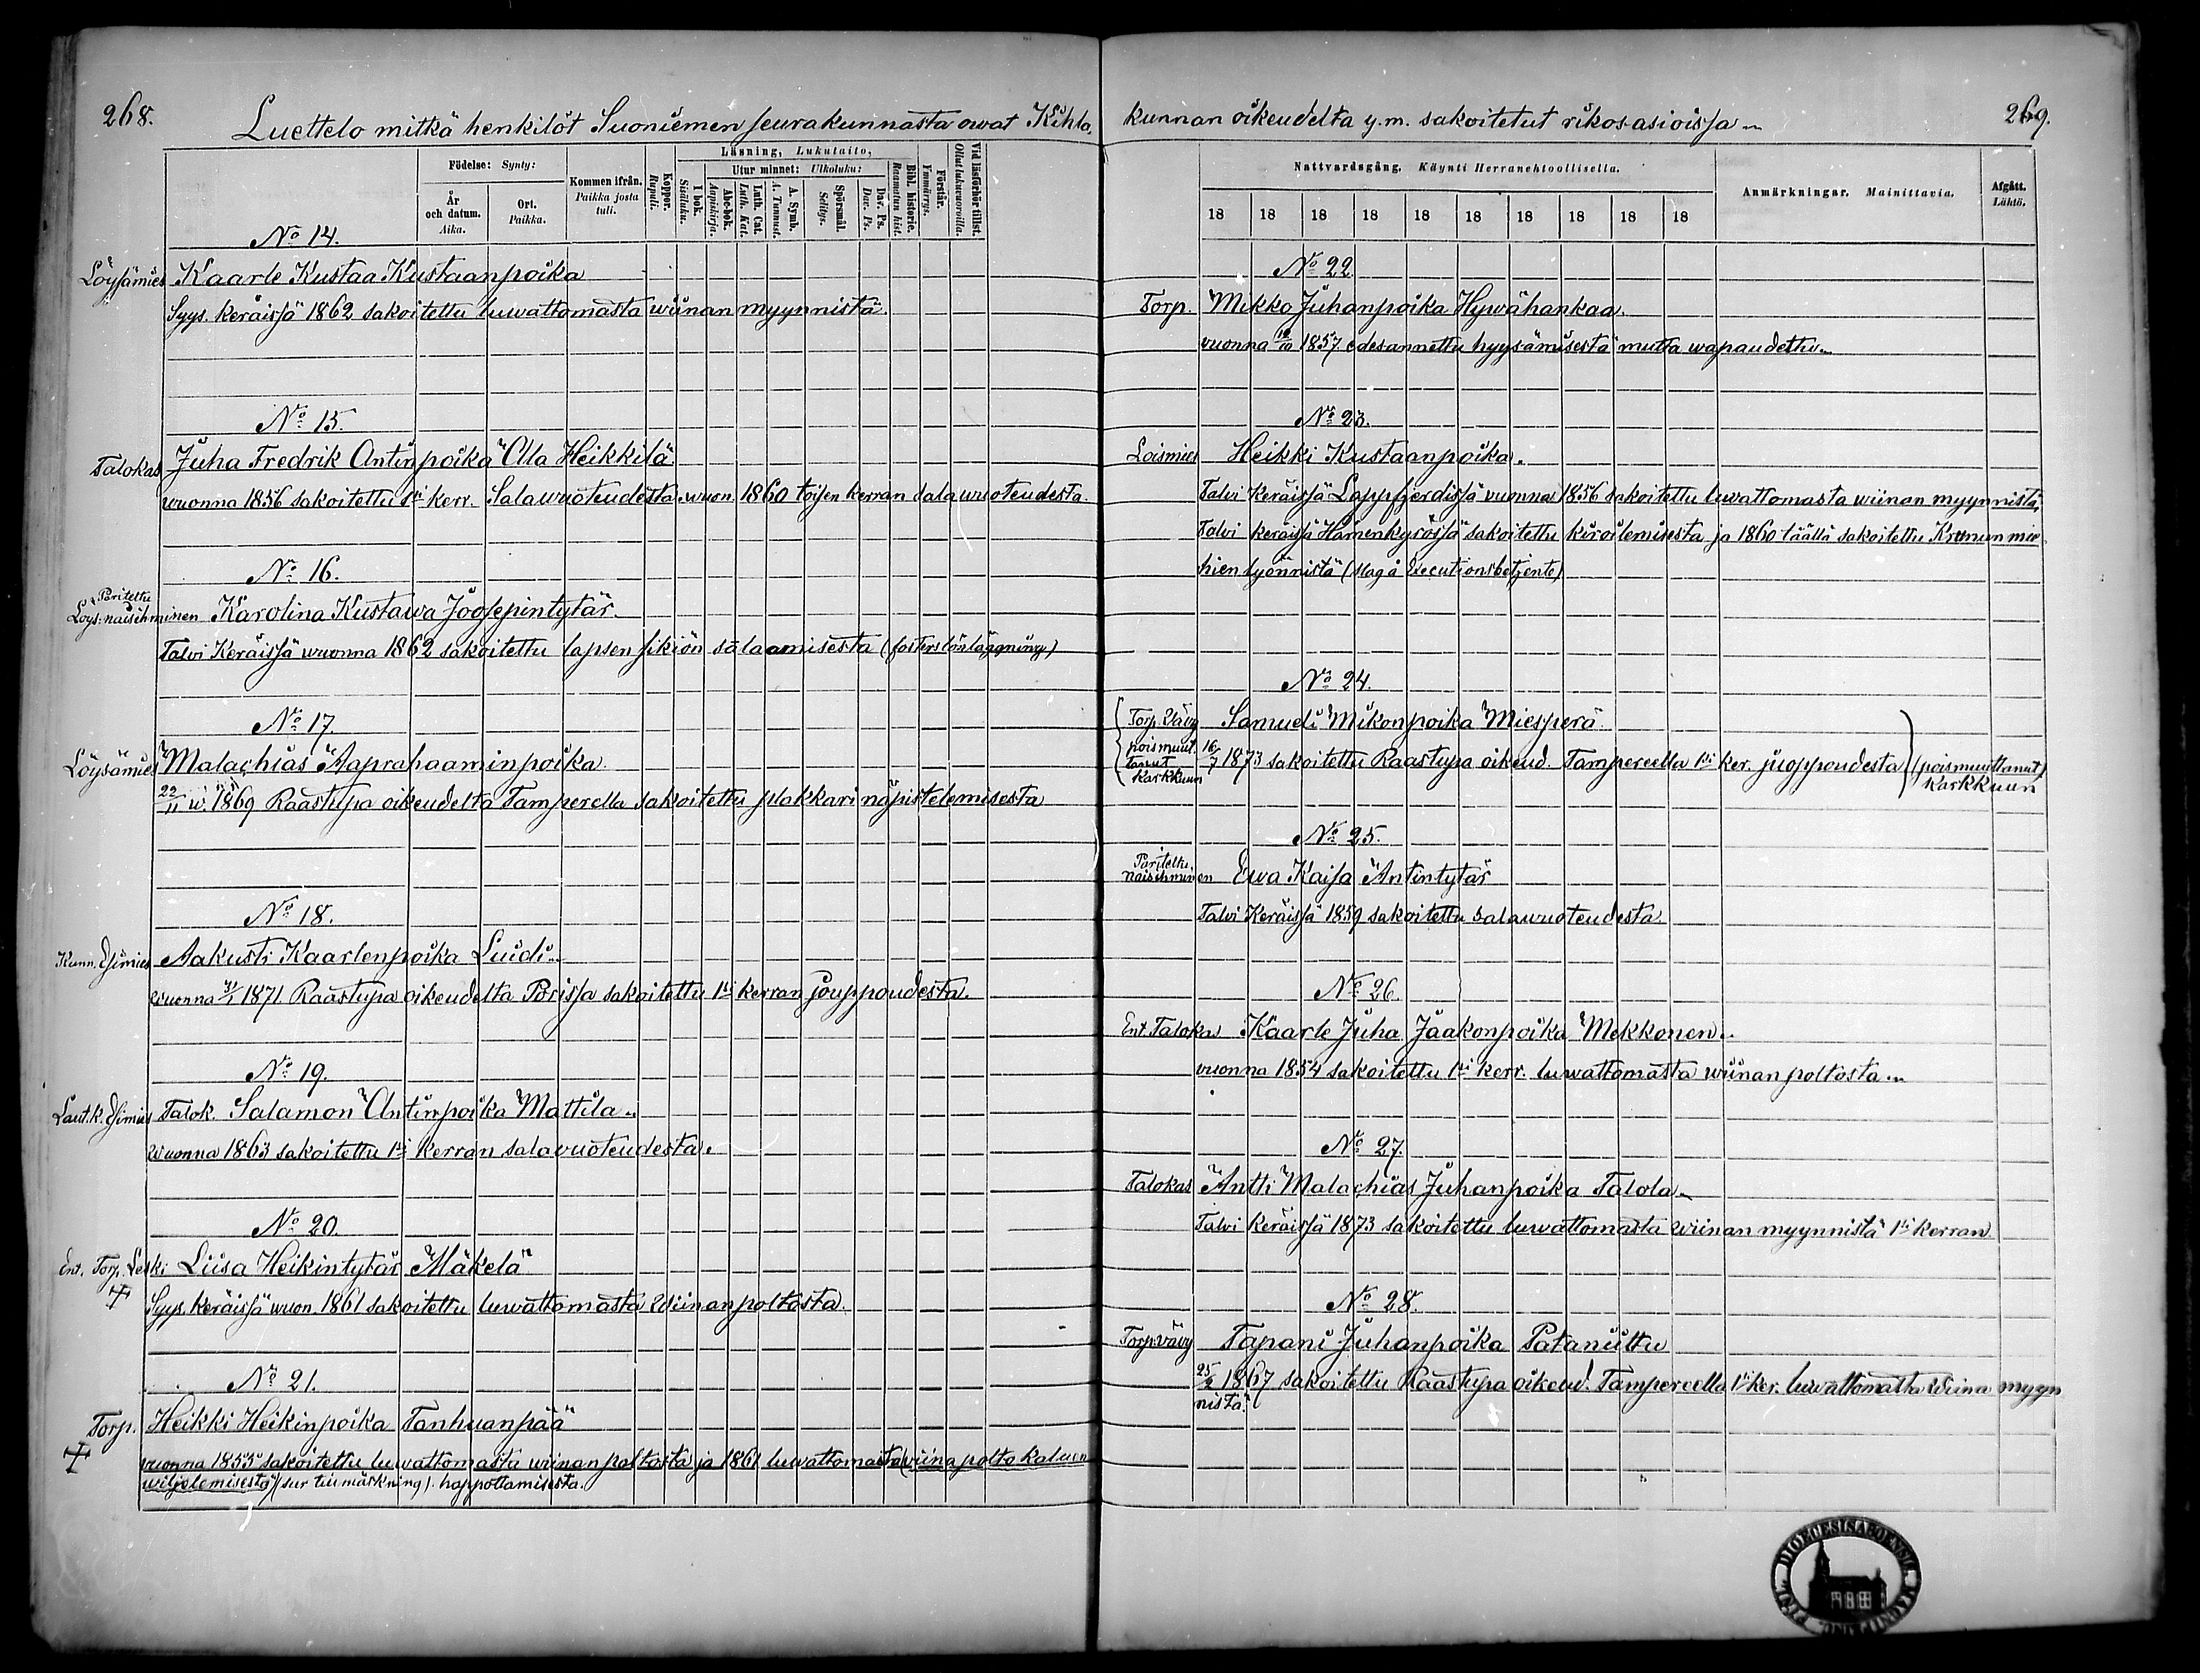 268.
Luettelo mitkä henkilöt Suoniemen seurakunnasta owat Kihla,
Födelse: Synty:
År och datum. Aika.
Ort. Paikka.
Kommen ifrån. Paikka josta tuli.
Koppor. Rupuli.
Läsning, Lukutaito,
I bok. Sisäluku.
Utur minnet: Ulkoluku:
Abc-bok. Aapiskirja.
Luth. Cat. Luth. Kat.
A. Symb. A. Tunnust.
Spörsmål. Selitys.
Dav. Ps. Dav. Ps.
Bibl. historie. Raamatun hist.
Förstår. Ymmärrys.
Vid läsförhör tillst. Ollut lukuwuoroilla.
No 14.
Löysämies Kaarle Kustaa Kustaanpoika
Syys. keräissä 1862 sakoitettu luwattomasta wiinan myynnistä.
No 15.
Talokas Juha Fredrik Antinpoika Ala Heikkilä
wuonna 1856 sakoitettu 1si kerr. Salawuoteudesta. wuon. 1860 toisen kerran salawuoteudesta.
No 16.
Pariteltu
Löys. naisihminen Karolina Kustawa Joosepintytär
Talvi Keräissä wuonna 1862 sakoitettu lapsen sikiön salaamisesta (fosters lönläggning)
No 17.
Löysämies Malachias Aaprahaaminpoika
22/11 w. 1869 Raastupa oikeudelta Tamperella sakoitettu plakkari näpistelemisesta
No 18.
Kunn. Esimies Aakusti Kaarlenpoika Luidi
wuonna 31/1 1871 Raastupa oikeudelta Porissa sakoitettu 1si kerran jouppoudesta.
No 19.
Laut.k. Esimies Talok. Salamon Antinpoika Mattila
Wuonna 1863 sakoitettu 1si kerran salavuoteudesta.
No 20.
Ent. Torp. Leski Liisa Heikintytär Mäkelä
Syys. keräissä wuon. 1861 sakoitettu luwattomasta Wiinanpoltosta
No 21.
Torp. Heikki Heikinpoika Tanhuanpää
vuonna 1853 sakoitettu luwattomasta wiinanpoltosta ja 1861 luwattomasta (wiina polto kaluen
wiljelemisestä) (sur till mäskning). happottamisesta.
269.
kunnan oikeudelta y.m. sakoitetut rikosasioissa
Nattvardsgång. Käynti Herranehtoollisella.
18 18 18 18 18 18 18 18 18 18
Anmärkningar. Mainittavia.
Afgått. Lähtö.
No 22
Torp. Mikko Juhanpoika Hywähankaa.
vuonna 19/10 1857 edesannettu hyysämisestä mutta wapaudettu
No 23.
Loismies Heikki Kustaanpoika.
Talvi Keräissä Lappfjerdissä vuonna 1856 sakoitettu luvattomasta wiinan myynnistä,
Talvi keräissä Hämenkyrössä sakoitettu kiroilemisesta ja 1860 täällä sakoitettu Krunun mie
hien lyönnistä (slag å Executionsbetjente)
No 24.
Torp. Vävy Samueli Mikonpoika Miesperä
poismuut 16/7 1873 sakoitettu Raastupa oikeud. Tampereella 1si ker. juoppoudesta (poismuuttanut)
tanut
Karkkuun
Karkkuun
No 25.
Pariteltu
naisihminen Ewa Kaisa Antintytär
Talvi Keräissä 1859 sakoitettu salawuoteudesta
No 26.
Ent. Talokas Kaarle Juha Jaakonpoika Mekkonen
vuonna 1854 sakoitettu 1si kerr. luwattomasta wiinanpoltosta
No 27.
Talokas Antti Malachias Juhanpoika Talola
Talvi keräissä 1873 sakoitettu luwattomasta wiinan myynnistä 1si kerran
No 28.
Torp.vävy Tapani Juhanpoika Pataniittu
25/2 1867 sakoitettu Raastupa oikeud. Tampereella 1si ker. luwattomasta Wiina myyn
nistä.